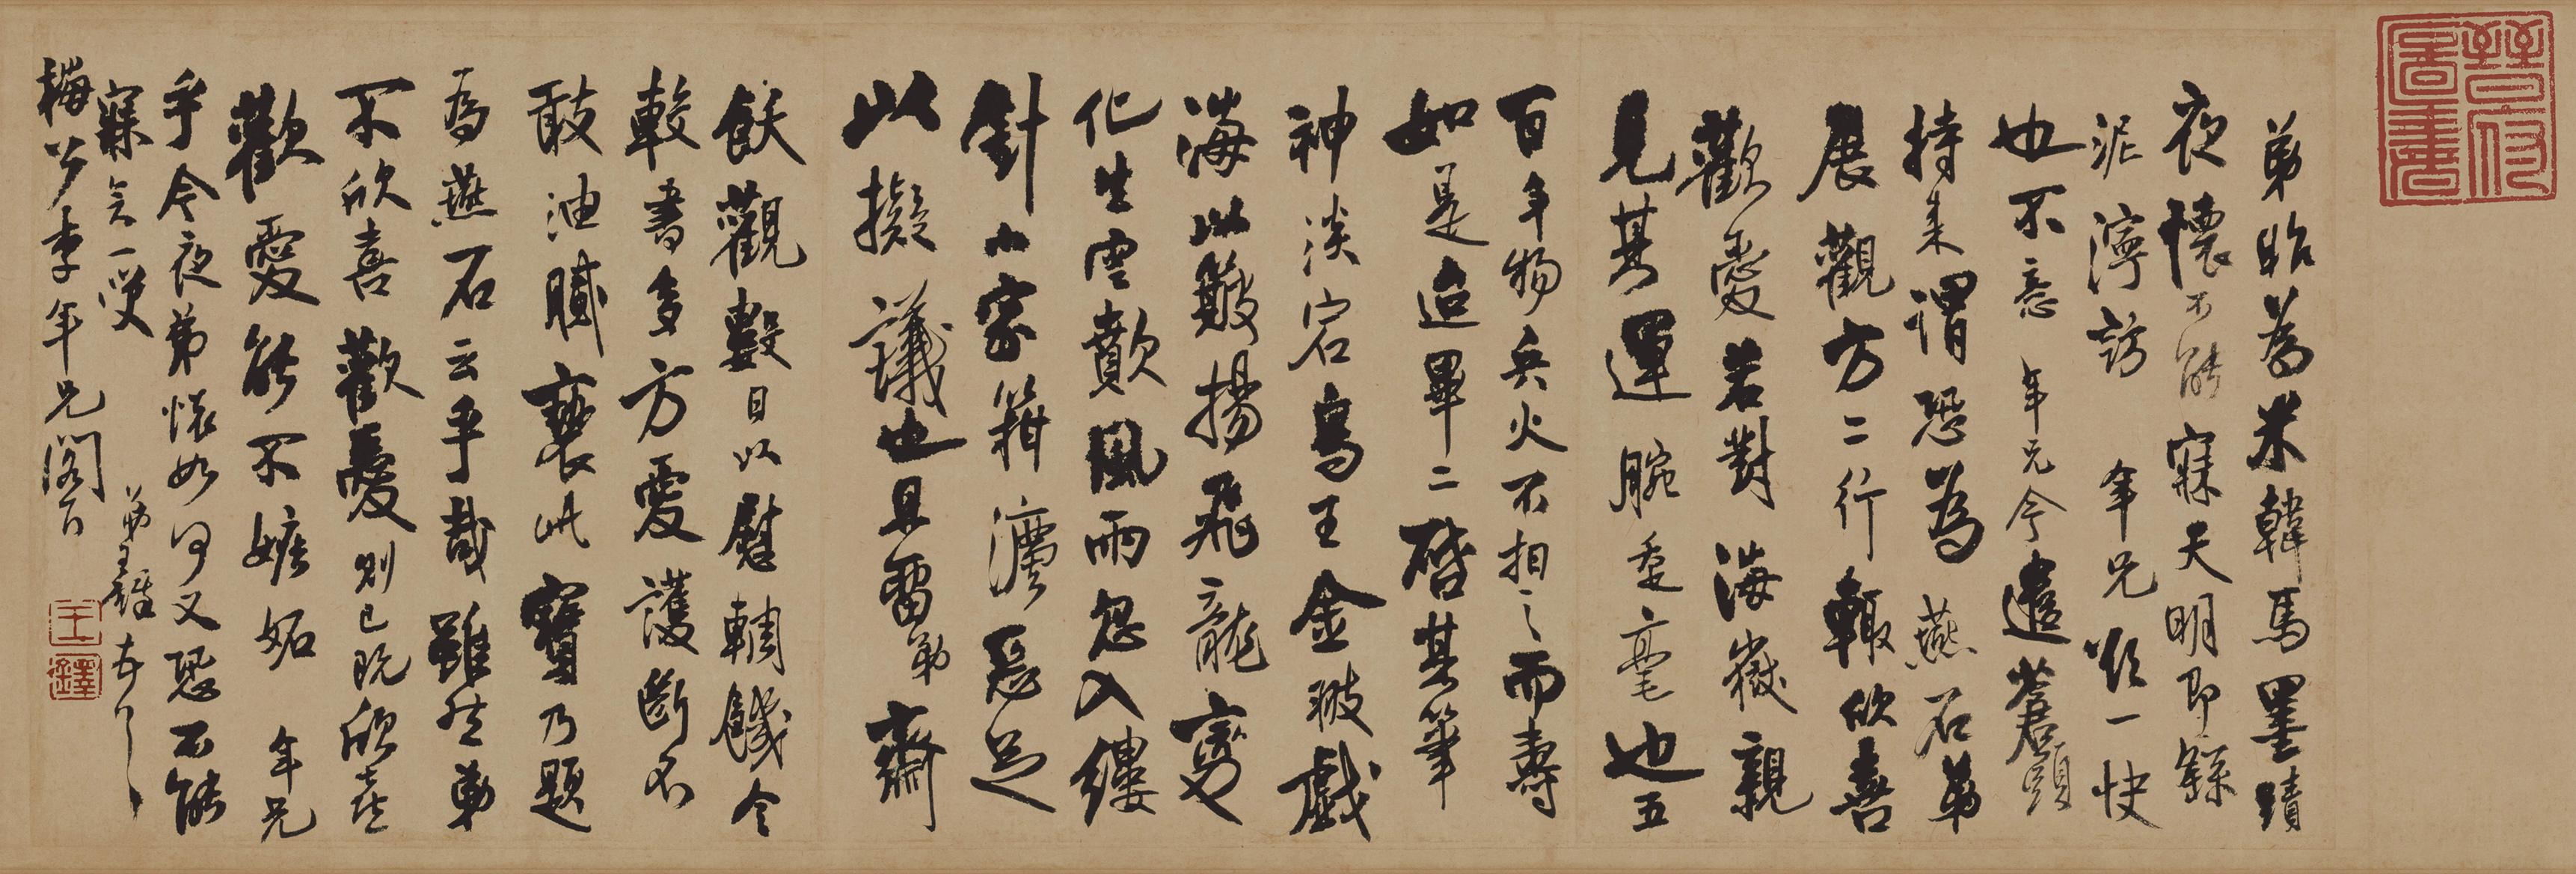 弟昨為米韓馬墨蹟
夜懷不能寐天明即
泥濘訪年兄一快
也不意年兄今遣蒼頭
持来謂恐為燕石弟
展觀方二行輒欣喜
歡愛若對海嶽親
見其運腕垂毫也五
百年物兵火不相之而壽
如是迨畢二啓其筆
神淡宕鳥王金戲
海以簸揚飛龍
化生雲歕風雨忽入縷
針小密箝濃惡足
此擬議也且留弟齋
飫觀數日以慰輖饑今
較書多方愛護斷不
敢油膩褻此寶乃題
為燕石云乎哉雖然弟
不欣喜歡愛則已既欣喜
歡愛能不嫉妬年兄
乎今夜弟懷如何又恐不能
寐矣一笑
弟王鐸
梅公李年兄閣下
王鐸